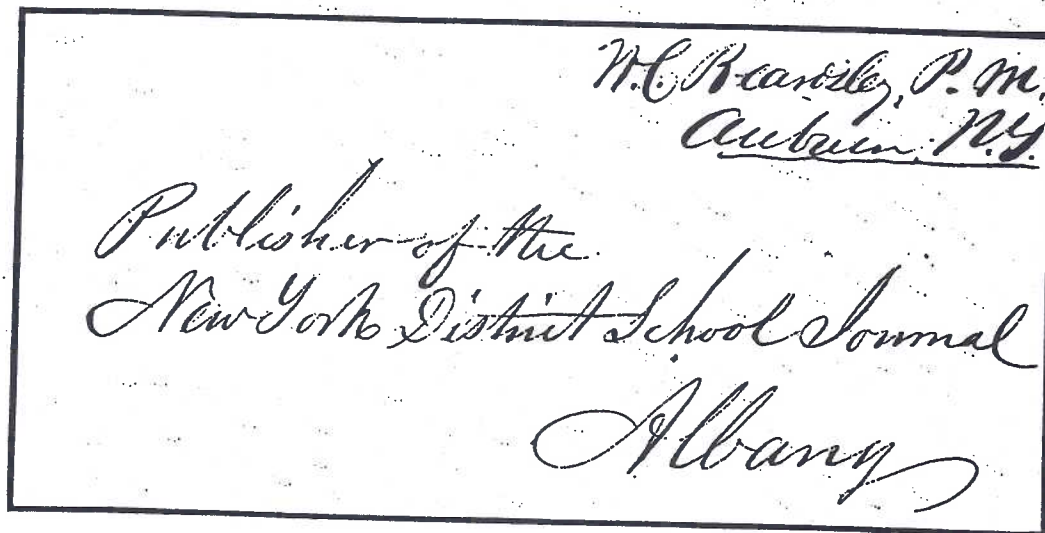 W.C. Beardsley, P. M.
Auburn, N.Y.
Publisher of the
New York District School Journal
Albany